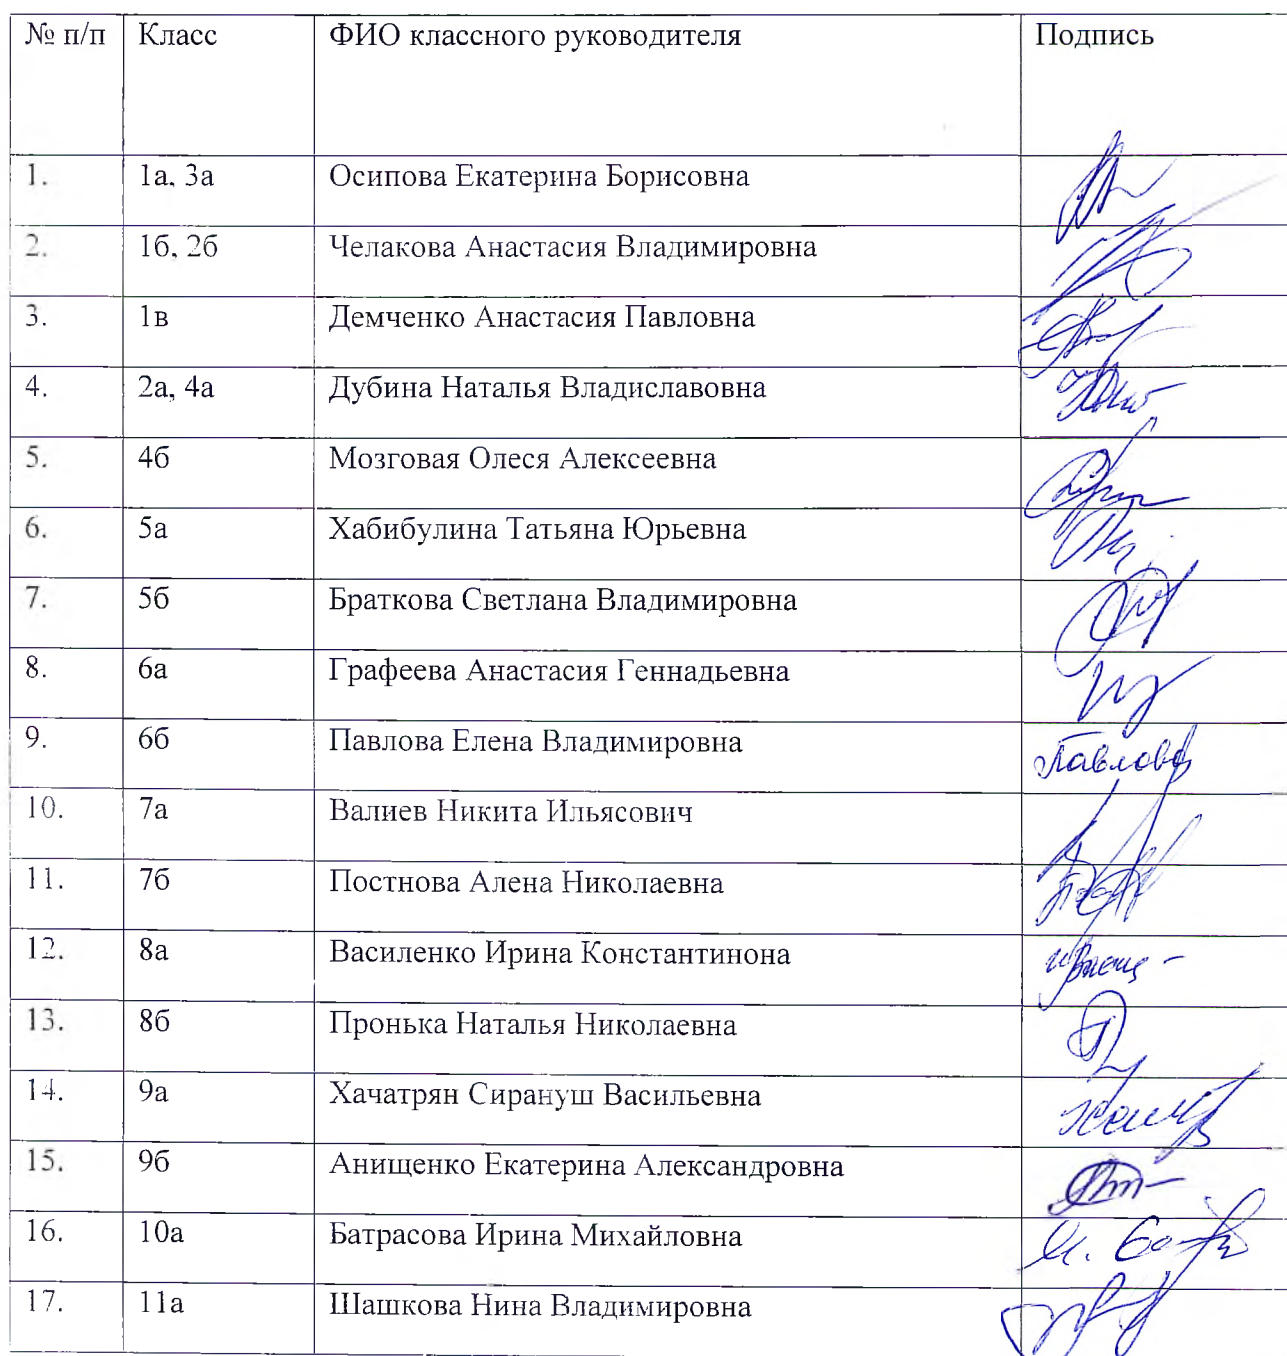 № п/п Класс ФИО классного руководителя Подпись
1. 1а, 3а Осипова Екатерина Борисовна
2. 1б, 2б Челакова Анастасия Владимировна
3. 1в Демченко Анастасия Павловна
4. 2а, 4а Дубина Наталья Владиславовна
5. 4б Мозговая Олеся Алексеевна
6. 5а Хабибулина Татьяна Юрьевна
7. 5б Браткова Светлана Владимировна
8. 6а Графеева Анастасия Геннадьевна
9. 6б Павлова Елена Владимировна Павлова
10. 7а Валиев Никита Ильясович
11. 7б Постнова Алена Николаевна
12. 8а Василенко Ирина Константинона
13. 8б Пронька Наталья Николаевна
14. 9а Хачатрян Сирануш Васильевна
15. 9б Анищенко Екатерина Александровна
16. 10а Батрасова Ирина Михайловна
17. 11а Шашкова Нина Владимировна